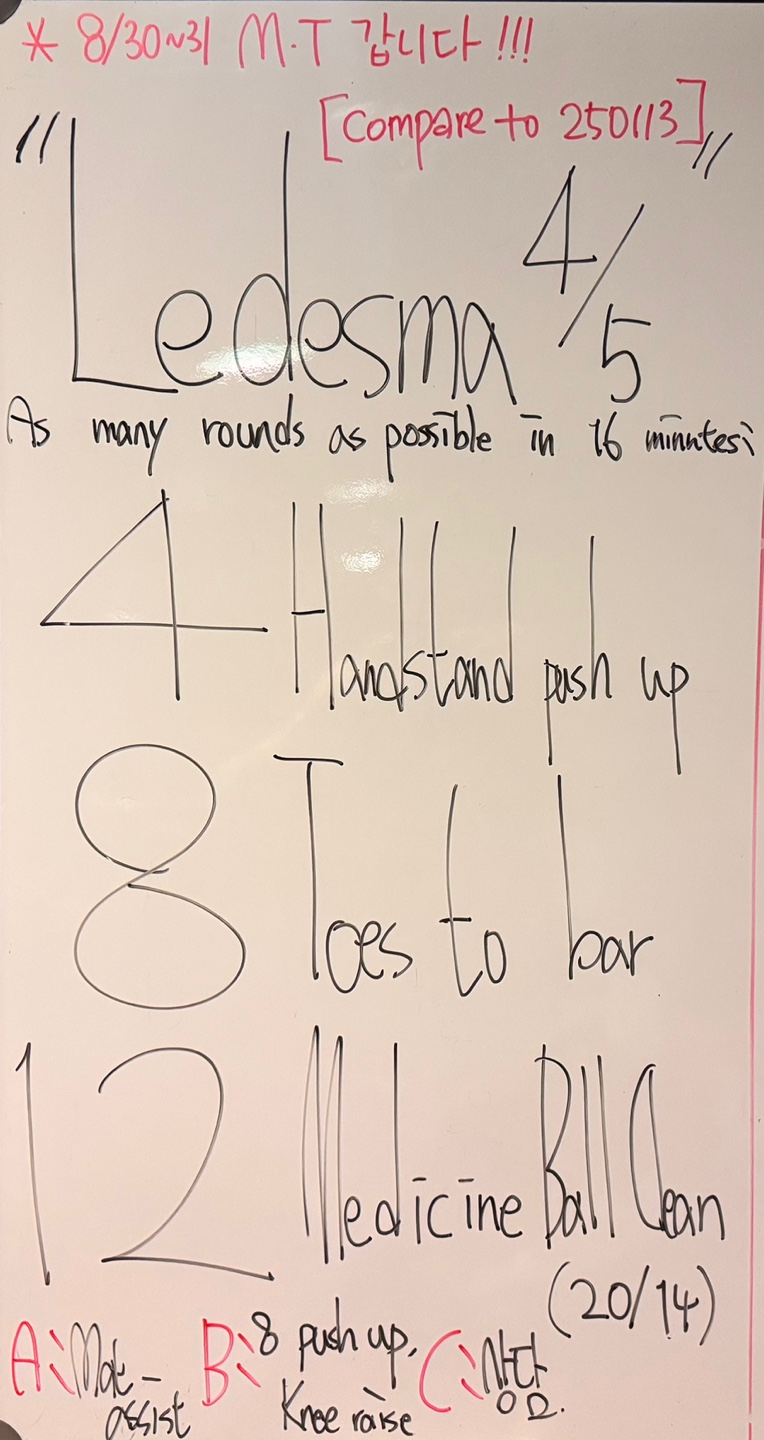 * 8/30~31 M.T 갑니다!!!
[Compare to 250113]
"Ledesma" 4/5
As many rounds as possible in 16 minutes:
4 Handstand push up
8 Toes to bar
12 Medicine Ball Clean
(20/14)
A: Mat-assist
B: 8 push up, Knee raise
C: 상담요.